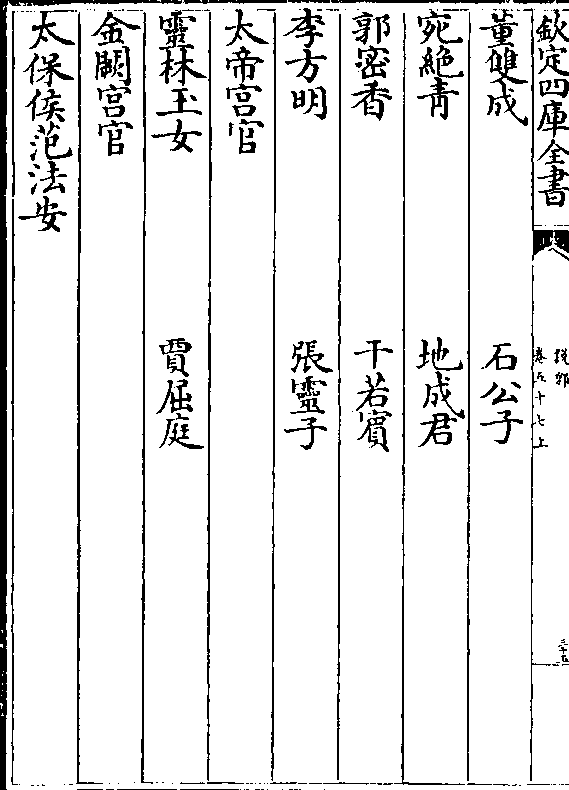 欽定四庫全書
説郛
卷五十七上
三十五
董雙成 石公子
宛絶青 地成君
郭密香 干若賓
李方明 張靈子
太帝宫官
靈林玉女 賈屈庭
金闕宫官
太保侯范法安